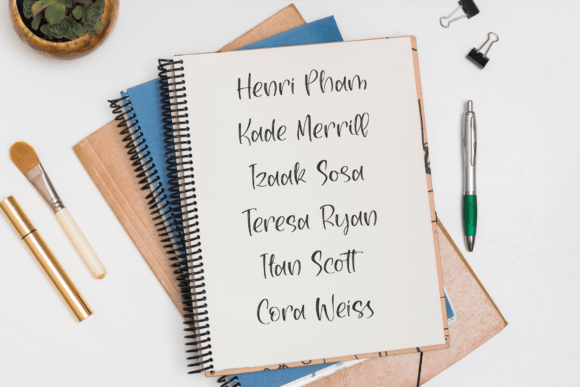 Henri Pham
Kade Merrill
Izaak Sosa
Teresa Ryan
Ilan Scott
Cora Weiss